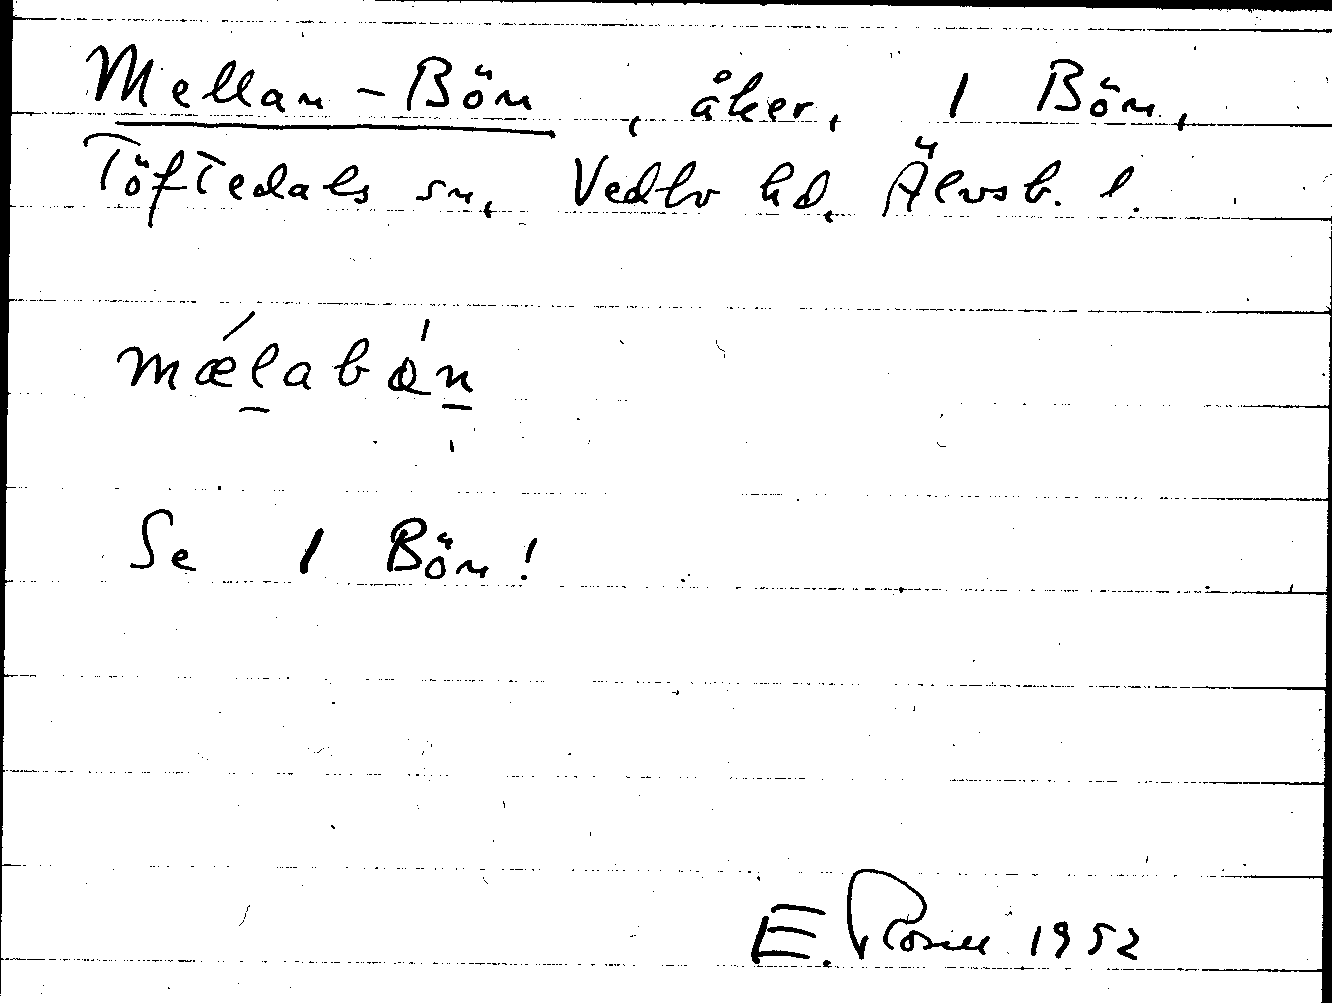 Mellan-Bön, åker, 1 Bön,
Töftedals sn, Vedbo hd, Älvsb. l.
mǽl̲abǿn̲
Se 1 Bön!
E. Rosell 1952